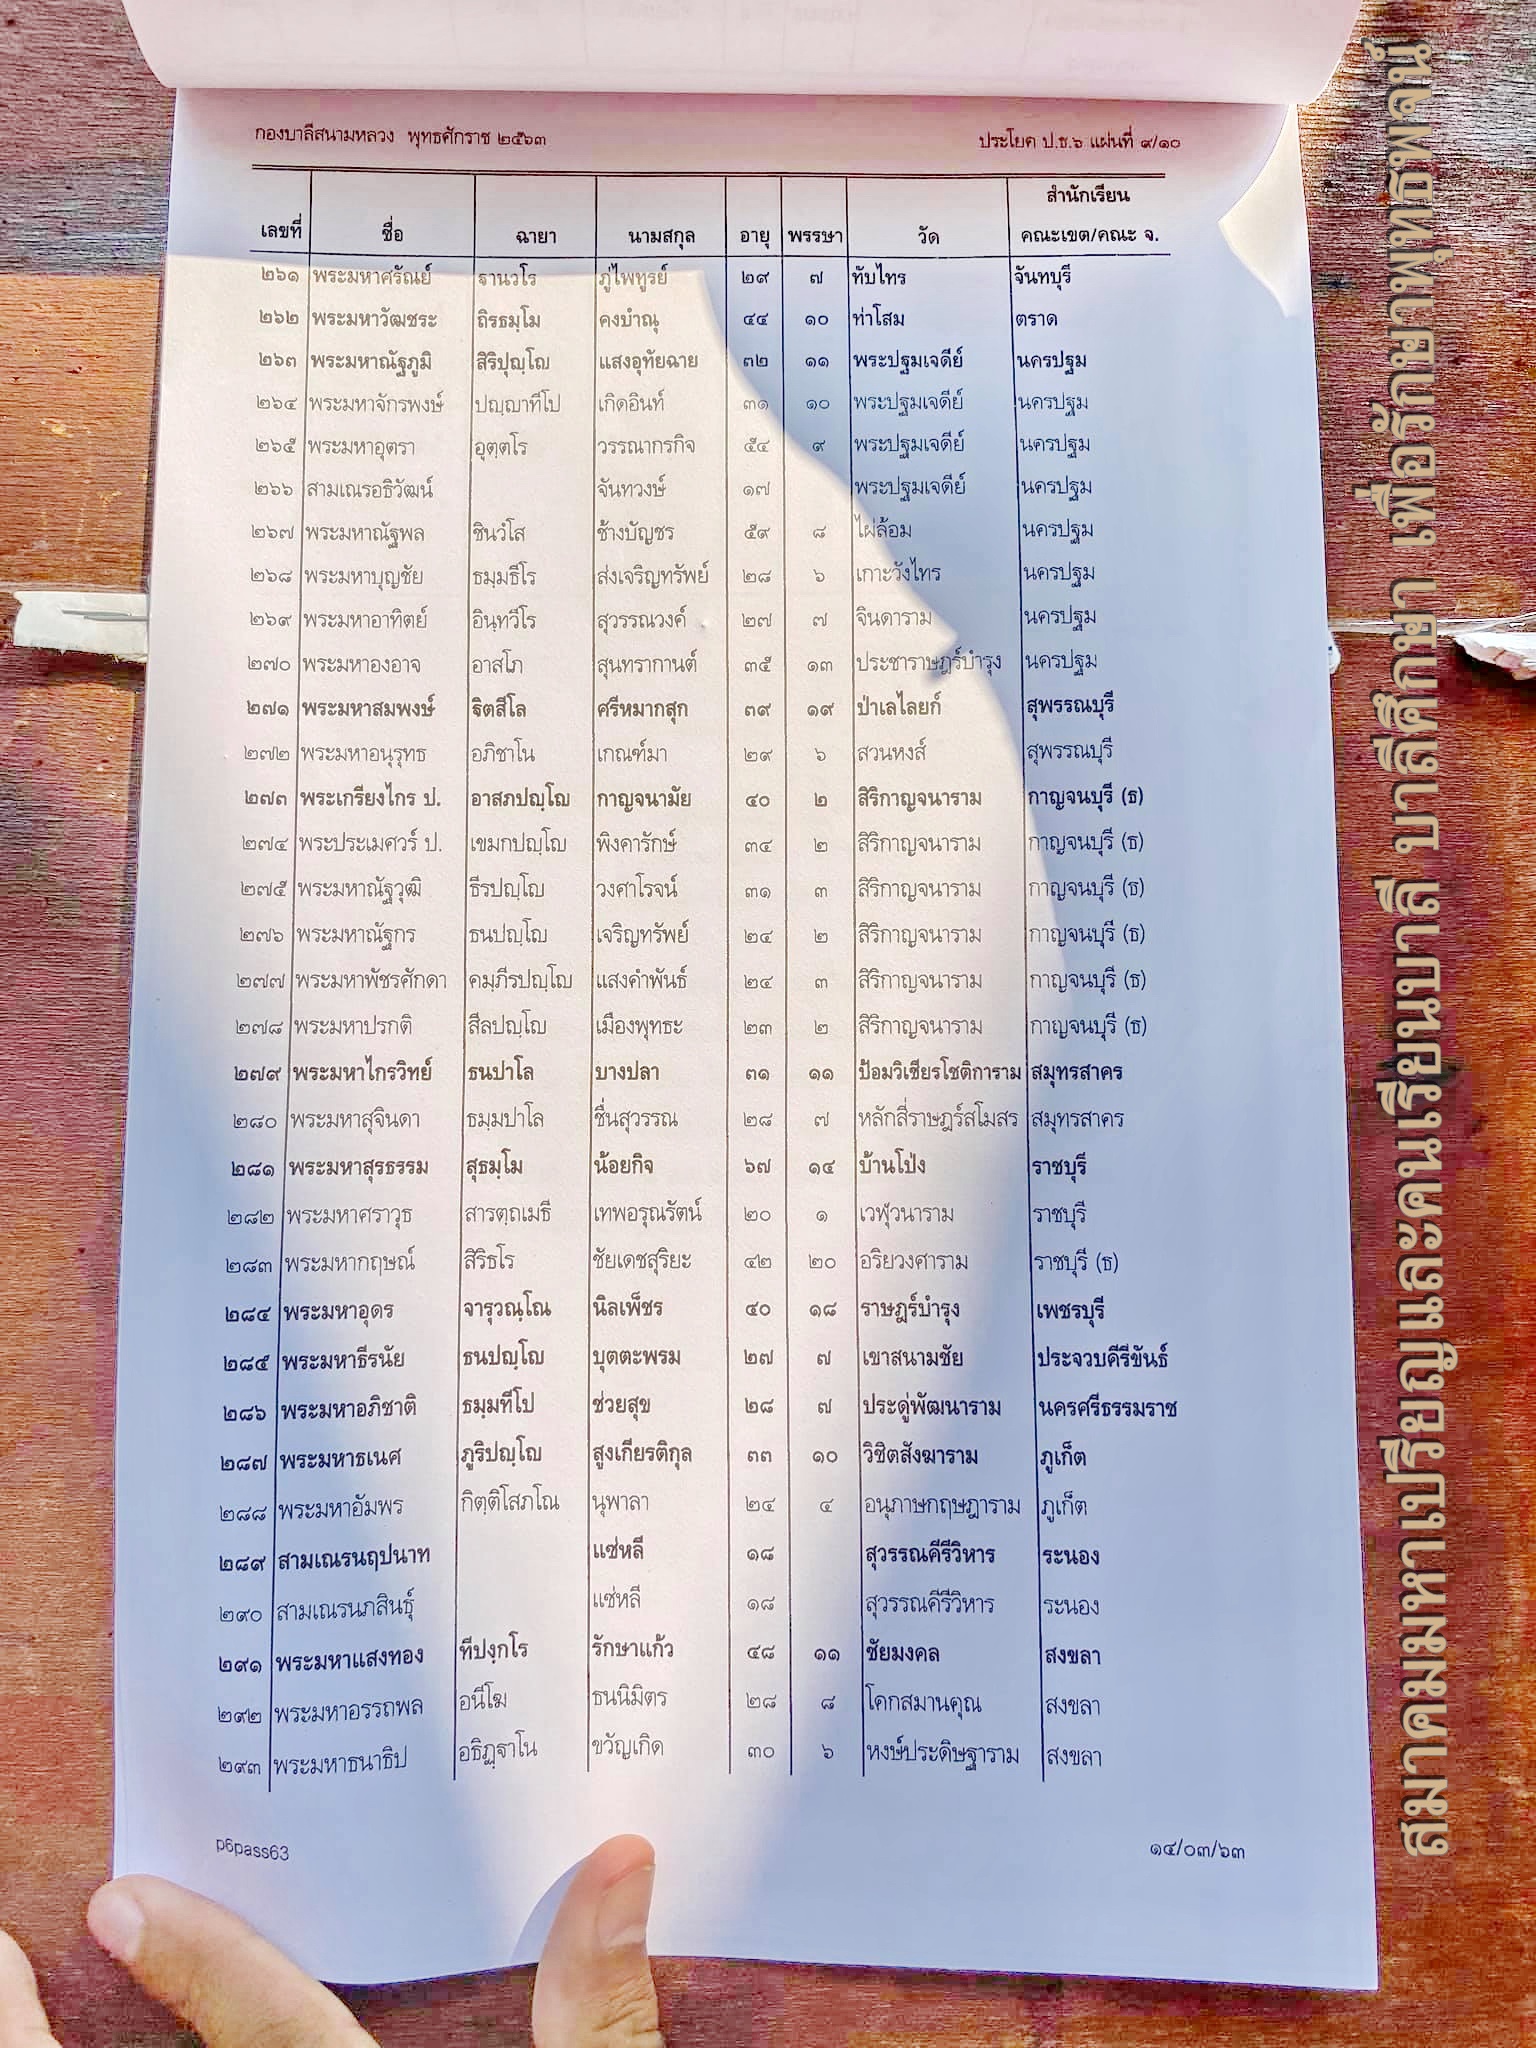 กองบาลีสนามหลวง พุทธศักราช ๒๕๖๓ ประโยค ป.ธ.๖ แผ่นที่ ๙/๑๐
สำนักเรียน
เลขที่ ชื่อ ฉายา นามสกุล อายุ พรรษา วัด คณะเขต/คณะ จ.
๒๖๑ พระมหาศรัณย์ ฐานวโร ภู่ไพทูรย์ ๒๙ ๗ ทับไทร จันทบุรี
๒๖๒ พระมหาวัฒชระ ถิรธมฺโม คงบำณุ ๔๔ ๑๐ ท่าโสม ตราด
๒๖๓ พระมหาณัฐภูมิ สิริปุญฺโญ แสงอุทัยฉาย ๓๒ ๑๑ พระปฐมเจดีย์ นครปฐม
๒๖๔ พระมหาจักรพงษ์ ปญฺญาทีโป เกิดอินท์ ๓๑ ๑๐ พระปฐมเจดีย์ นครปฐม
๒๖๕ พระมหาอุตรา อุตฺตโร วรรณากรกิจ ๕๔ ๙ พระปฐมเจดีย์ นครปฐม
๒๖๖ สามเณรอธิวัฒน์ จันทวงษ์ ๑๗ พระปฐมเจดีย์ นครปฐม
๒๖๗ พระมหาณัฐพล ชินวํโส ช้างบัญชร ๕๙ ๘ ไผ่ล้อม นครปฐม
๒๖๘ พระมหาบุญชัย ธมฺมธีโร ส่งเจริญทรัพย์ ๒๘ ๖ เกาะวังไทร นครปฐม
๒๖๙ พระมหาอาทิตย์ อินฺทวีโร สุวรรณวงค์ ๒๗ ๗ จินดาราม นครปฐม
๒๗๐ พระมหาองอาจ อาสโภ สุนทรากานต์ ๓๕ ๑๓ ประชาราษฎร์บำรุง นครปฐม
๒๗๑ พระมหาสมพงษ์ ฐิตสีโล ศรีหมากสุก ๓๙ ๑๙ ป่าเลไลยก์ สุพรรณบุรี
๒๗๒ พระมหาอนุรุทธ อภิชาโน เกณฑ์มา ๒๙ ๖ สวนหงส์ สุพรรณบุรี
๒๗๓ พระเกรียงไกร ป. อาสภปญฺโญ กาญจนามัย ๔๐ ๒ สิริกาญจนาราม กาญจนบุรี (ธ)
๒๗๔ พระประเมศวร์ ป. เขมกปญฺโญ พิงคารักษ์ ๓๔ ๒ สิริกาญจนาราม กาญจนบุรี (ธ)
๒๗๕ พระมหาณัฐวุฒิ ธีรปญฺโญ วงศาโรจน์ ๓๑ ๓ สิริกาญจนาราม กาญจนบุรี (ธ)
๒๗๖ พระมหาณัฐกร ธนปญฺโญ เจริญทรัพย์ ๒๔ ๒ สิริกาญจนาราม กาญจนบุรี (ธ)
๒๗๗ พระมหาพัชรศักดา คมฺภีรปญฺโญ แสงคำพันธ์ ๒๔ ๓ สิริกาญจนาราม กาญจนบุรี (ธ)
๒๗๘ พระมหาปรกติ สีลปญฺโญ เมืองพุทธะ ๒๓ ๒ สิริกาญจนาราม กาญจนบุรี (ธ)
๒๗๙ พระมหาไกรวิทย์ ธนปาโล บางปลา ๓๑ ๑๑ ป้อมวิเชียรโชติการาม สมุทรสาคร
๒๘๐ พระมหาสุจินดา ธมฺมปาโล ชื่นสุวรรณ ๒๘ ๗ หลักสี่ราษฎร์สโมสร สมุทรสาคร
๒๘๑ พระมหาสุรธรรม สุธมฺโม น้อยกิจ ๖๗ ๑๔ บ้านโป่ง ราชบุรี
๒๘๒ พระมหาศราวุธ สารตฺถเมธี เทพอรุณรัตน์ ๒๐ ๑ เวฬุวนาราม ราชบุรี
๒๘๓ พระมหากฤษณ์ สิริธโร ชัยเดชสุริยะ ๔๒ ๒๐ อริยวงศาราม ราชบุรี (ธ)
๒๘๔ พระมหาอุดร จารุวณฺโณ นิลเพ็ชร ๔๐ ๑๘ ราษฎร์บำรุง เพชรบุรี
๒๘๕ พระมหาธีรนัย ธนปญฺโญ บุตตะพรม ๒๗ ๗ เขาสนามชัย ประจวบคีรีขันธ์
๒๘๖ พระมหาอภิชาติ ธมฺมทีโป ช่วยสุข ๒๘ ๗ ประดู่พัฒนาราม นครศรีธรรมราช
๒๘๗ พระมหาธเนศ ภูริปญฺโญ สูงเกียรติกุล ๓๓ ๑๐ วิชิตสังฆาราม ภูเก็ต
๒๘๘ พระมหาอัมพร กิตฺติโสภโณ นุพาลา ๒๔ ๔ อนุภาษกฤษฎาราม ภูเก็ต
๒๘๙ สามเณรนฤปนาท แซ่หลี ๑๘ สุวรรณคีรีวิหาร ระนอง
๒๙๐ สามเณรนภสินธุ์ แซ่หลี ๑๘ สุวรรณคีรีวิหาร ระนอง
๒๙๑ พระมหาแสงทอง ทีปงฺกโร รักษาแก้ว ๔๘ ๑๑ ชัยมงคล สงขลา
๒๙๒ พระมหาอรรถพล อนีโฆ ธนนิมิตร ๒๘ ๘ โคกสมานคุณ สงขลา
๒๙๓ พระมหาธนาธิป อธิฏฺฐาโน ขวัญเกิด ๓๐ ๖ หงษ์ประดิษฐาราม สงขลา
p6pass63 ๑๔/๐๓/๖๓
สมาคมมหาเปรียญและคนเรียนบาลี บาลีศึกษา เพื่อรักษาพุทธพจน์